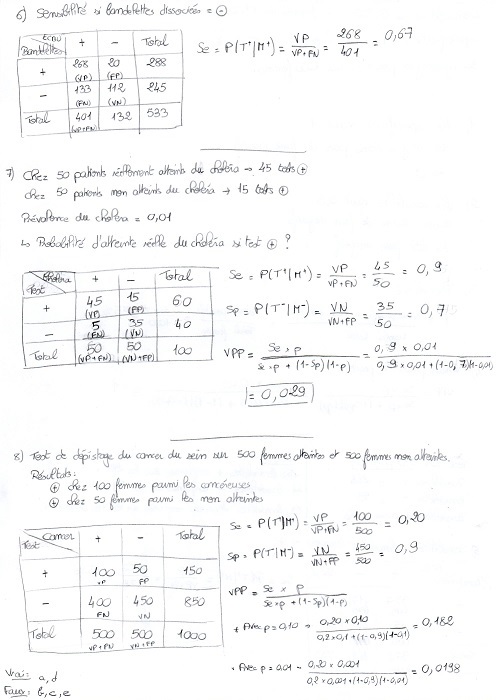 6) Sensibilité si bandelettes dissociées = ⊖
ECBU + - Total
Bandelettes
+ 268 (VP) 20 (FP) 288
- 133 (FN) 112 (VN) 245
Total 401 (VP+FN) 132 533
Se = P(T⁺|M⁺) = VP / VP+FN = 268 / 401 = 0,67
7) Chez 50 patients réellement atteints du choléra → 45 tests ⊕
chez 50 patients non atteints du choléra → 15 tests ⊕
Prévalence du choléra = 0,01
↳ Probabilité d'atteinte réelle du choléra si test ⊕ ?
Choléra + - Total
Test
+ 45 (VP) 15 (FP) 60
- 5 (FN) 35 (VN) 40
Total 50 (VP+FN) 50 (VN+FP) 100
Se = P(T⁺|M⁺) = VP / VP+FN = 45 / 50 = 0,9
Sp = P(T⁻|M⁻) = VN / VN+FP = 35 / 50 = 0,7
VPP = Se×p / Se×p + (1-Sp)(1-p) = 0,9 × 0,01 / 0,9×0,01+(1-0,7)(1-0,01)
= 0,029
8) Test de dépistage du cancer du sein sur 500 femmes atteintes et 500 femmes non atteintes.
Résultats:
⊕ chez 100 femmes parmi les cancéreuses
⊕ chez 50 femmes parmi les non atteintes
Cancer + - Total
Test
+ 100 VP 50 FP 150
- 400 FN 450 VN 850
Total 500 VP+FN 500 VN+FP 1000
Se = P(T⁺|M⁺) = VP / VP+FN = 100 / 500 = 0,20
Sp = P(T⁻|M⁻) = VN / VN+FP = 450 / 500 = 0,9
VPP = Se × p / Se×p + (1-Sp)(1-p)
* Avec p = 0,10 → 0,20×0,10 / 0,2×0,1+(1-0,9)(1-0,1) = 0,182
* Avec p = 0,01 → 0,20×0,001 / 0,2×0,001+(1-0,9)(1-0,01) = 0,0198
Vrai: a,d
Faux: b,c,e